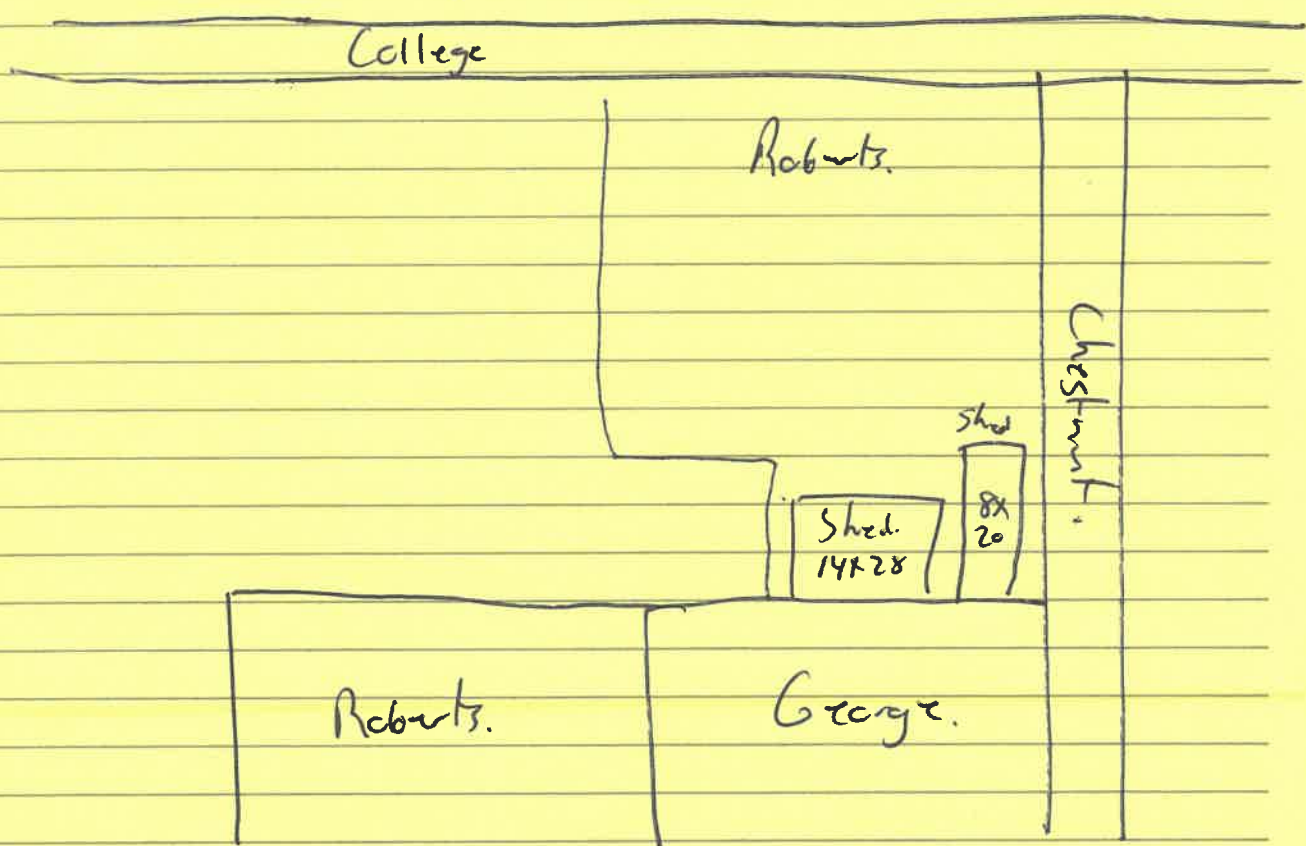 College
Roberts.
Chestnut.
Shed
8x
20
Shed.
14x28
Roberts.
George.